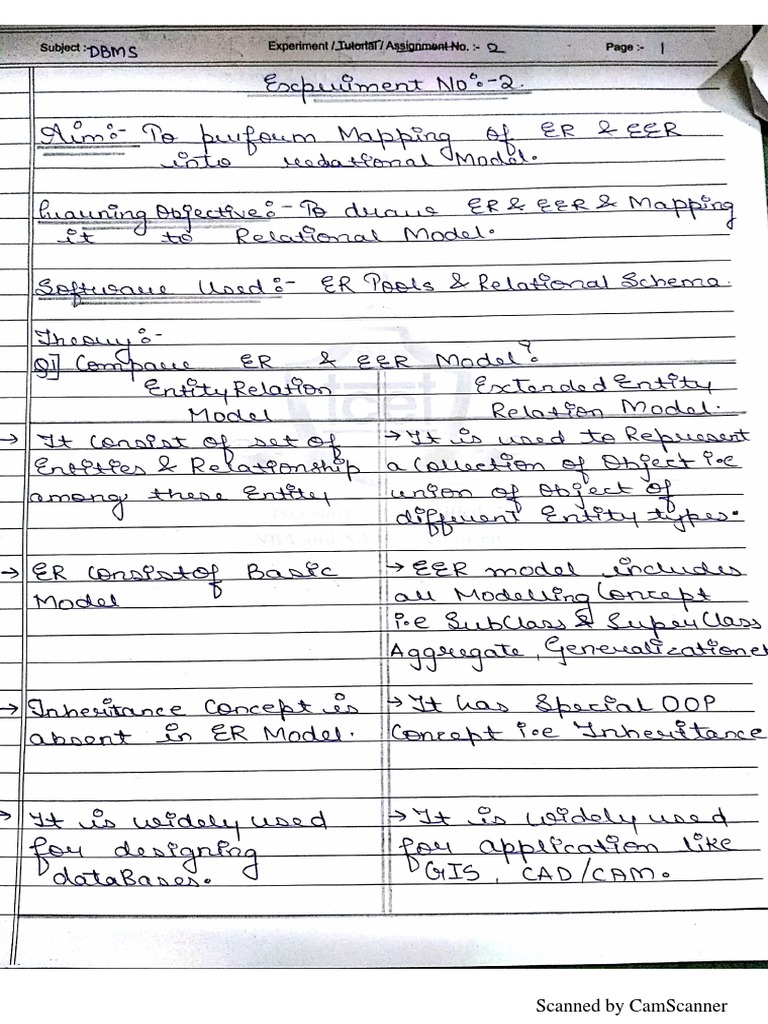 Subject :- DBMS Experiment / Tutorial / Assignment No. :- 2 Page :- 1
Experiment No:-2.
Aim:- To perform Mapping of ER & EER
into relational Model.
Learning Objective:- To draw ER & EER & Mapping
it to Relational Model.
Software Used:- ER Tools & Relational Schema.
Theory:-
Q1] Compare ER & EER Model?
Entity Relation
Model
→ It consist of set of
Entities & Relationship
among these Entity
→ ER consist of Basic
Model
→ Inheritance Concept is
absent in ER Model.
→ It is widely used
for designing
dataBases.
Extended Entity
Relation Model.
→ It is used to Represent
a Collection of Object i.e
union of Object of
different Entity types.
→ EER model includes
all Modelling Concept
i.e SubClass & SuperClass
Aggregate, Generalization et
→ It has Special OOP
Concept i.e Inheritance
→ It is widely used
for application like
GIS, CAD/CAM.
Scanned by CamScanner